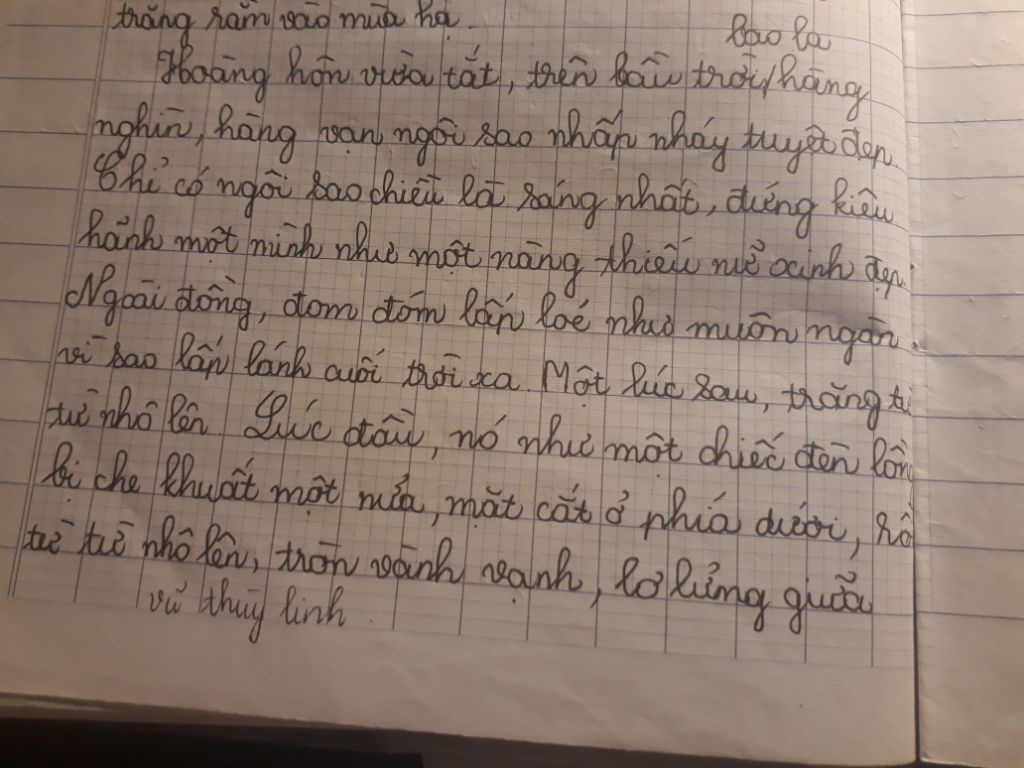 trăng rằm vào mùa hạ.
bao la
Hoàng hôn vừa tắt, trên bầu trời/hàng
nghìn, hàng vạn ngôi sao nhấp nháy tuyệt đẹp.
Chỉ có ngôi sao chiều là sáng nhất, đứng kiêu
hảnh một mình như một nàng thiếu nử xinh đẹp.
Ngoài đồng, đom đóm lấp loé như muôn ngàn
vì sao lấp lánh cuối trời xa. Một lúc sau, trăng từ
từ nhô lên. Lúc đầu, nó như một chiếc đèn lồng
bị che khuất một nửa, mặt cắt ở phía dưới, rồi
từ từ nhô lên, tròn vành vạnh, lơ lửng giữa
vử thuỳ linh.